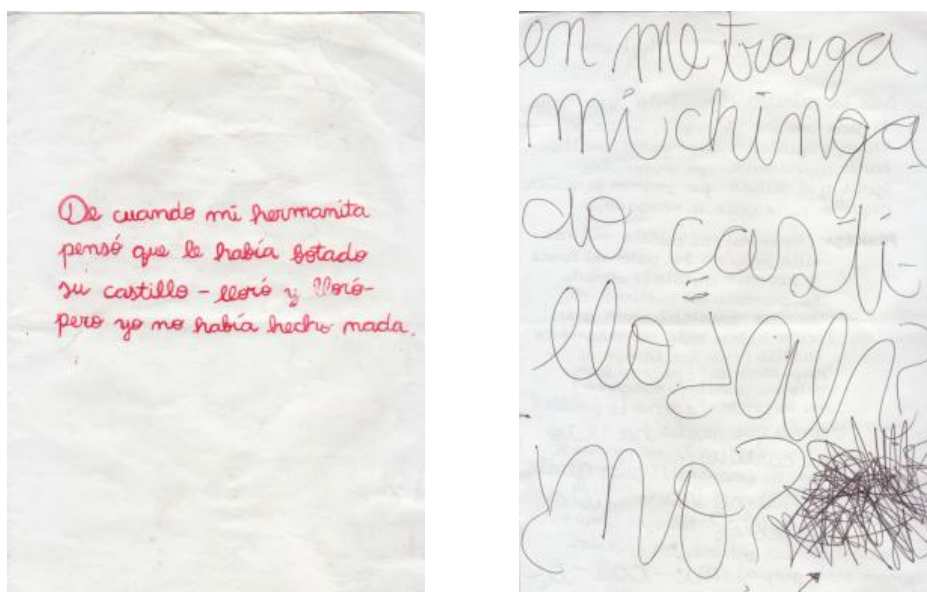 De cuando mi hermanita
pensó que le había botado
su castillo - lloró y lloró-
pero yo no había hecho nada.
en me traiga
mi chinga
do casti-
llo
¿no?